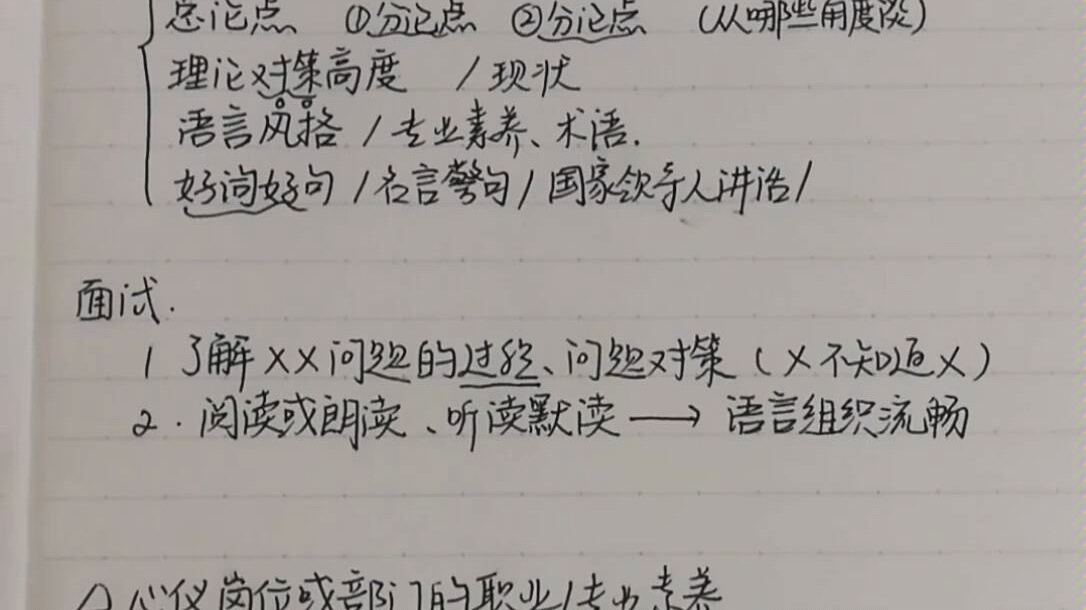 总论点 ①分论点 ②分论点 (从哪些角度谈)
理论对策高度 / 现状
语言风格 / 专业素养、术语.
好词好句 / 名言警句 / 国家领导人讲话 /
面试.
1 了解××问题的过程、问题对策 (×不知道×)
2. 阅读或朗读、听读默读 → 语言组织流畅
心仪岗位或部门的职业/专业素养